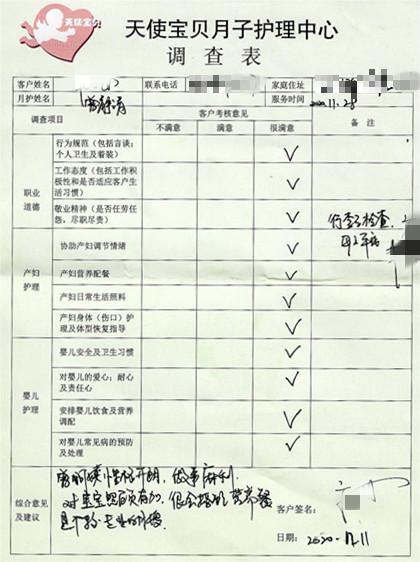 天使宝贝
天使宝贝月子护理中心
调查表
客户姓名 联系电话 家庭住址
月护姓名 曾静涛 服务时间 2020.11.28
调查项目 客户考核意见 备 注
不满意 满意 很满意
职业道德
行为规范（包括言谈；个人卫生及着装） ✓
工作态度（包括工作积极性和是否适应客户生活习惯） ✓
敬业精神（是否任劳任怨，尽职尽责） ✓
产妇护理
协助产妇调节情绪 ✓
产妇营养配餐 ✓
产妇日常生活照料 ✓
产妇身体（伤口）护理及体型恢复指导 ✓
婴儿护理
婴儿安全及卫生习惯 ✓
对婴儿的爱心；耐心及责任心 ✓
安排婴儿饮食及营养调配 ✓
对婴儿常见病的预防及处理 ✓
综合意见及建议
性格开朗，做事麻利
对宝宝照顾有加，很会搭配营养餐
是个 专业的
客户签名：
日期： 2020.12.11